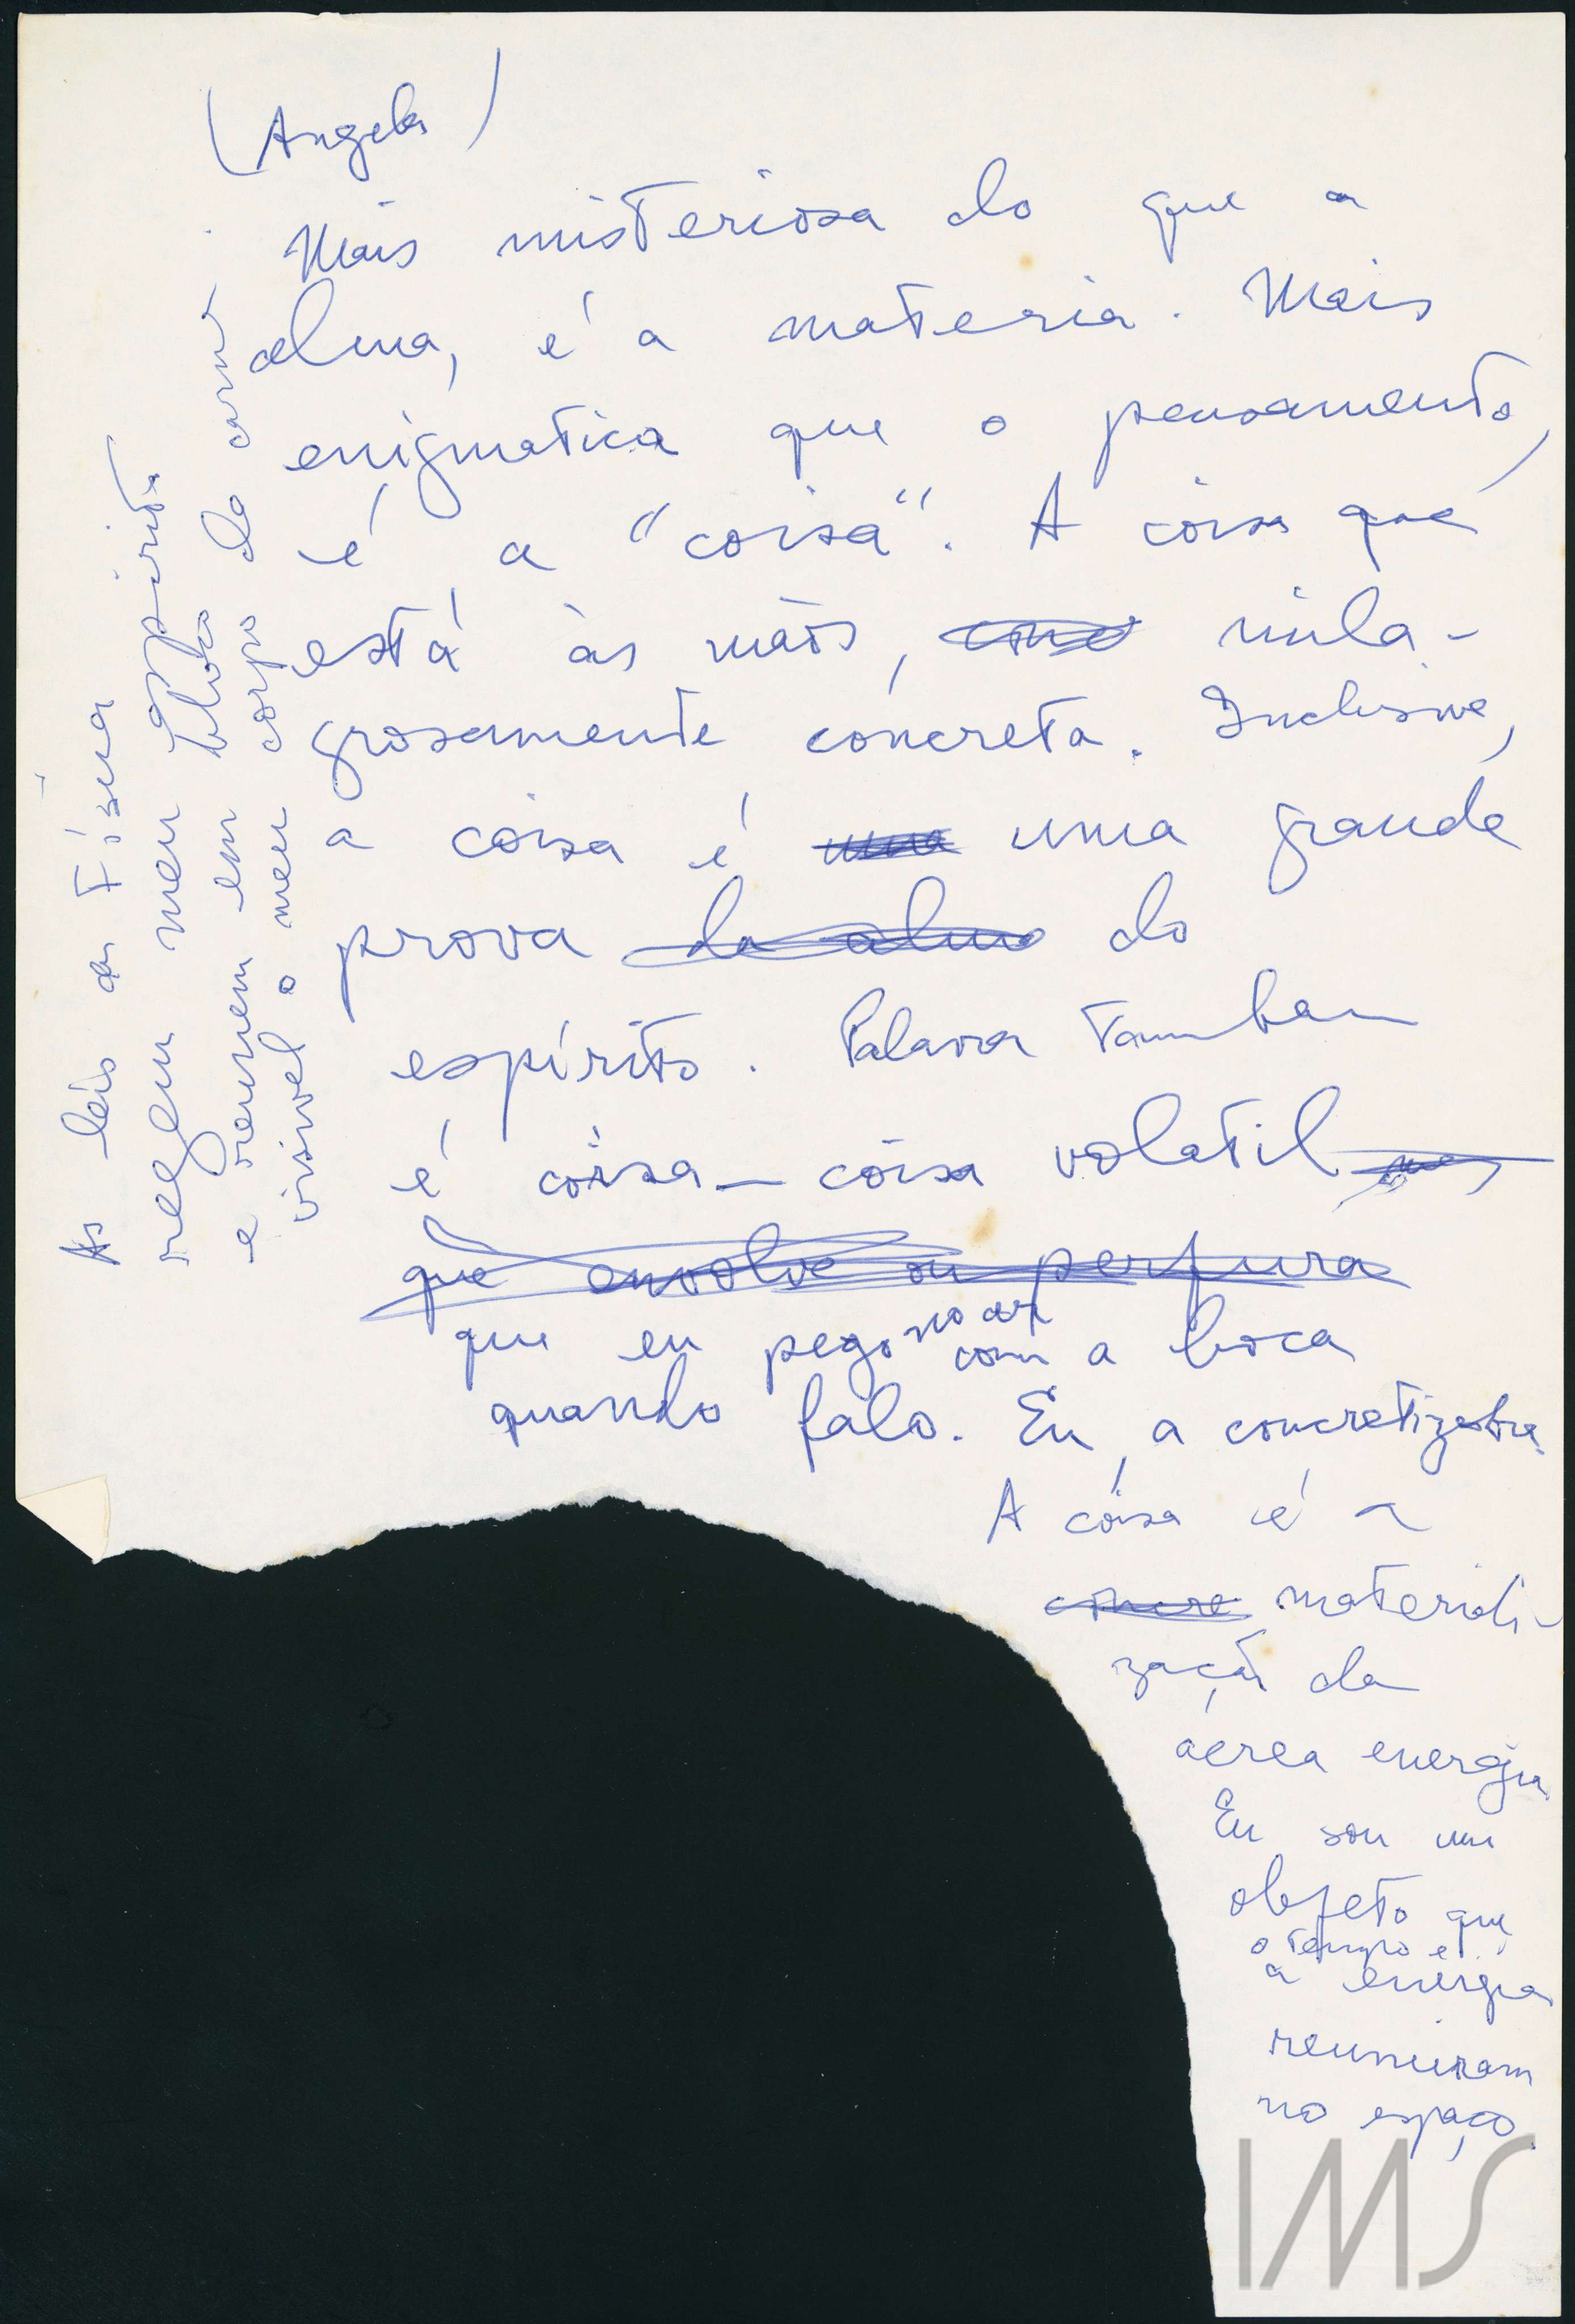 (Angela)
Mais misteriosa do que a
alma, é a materia. Mais
enigmatica que o pensamento,
é a "coisa". A coisa que
está às mãos, mila-
grosamente concreta. Inclusive,
a coisa é uma uma grande
prova da alma do
espírito. Palavra tambem
é coisa — coisa volatil mas
que envolve ou perfura
que eu pego no ar com a boca
quando falo. Eu, a concretizadora.
A coisa é a
concre materiali-
zação da
aerea energia
Eu sou um
objeto que
o tempo e
a energia
reuniram
no espaço.
As leis da Física
regem meu espirito
e reunem em bloco
visivel o meu corpo de carne.
IMS